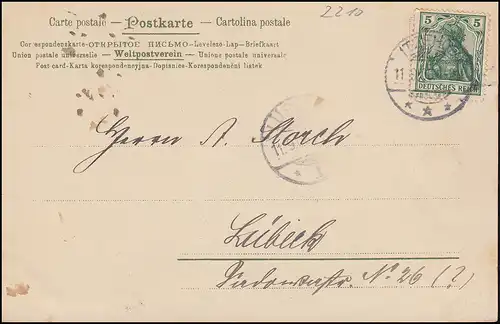 Carte postale — Postkarte — Cartolina postale
2210
Correspondenzkarte-ОТКРЫТОЕ ПИСЬМО-Levelező-Lap-Briefkaart
Union postale universelle — Weltpostverein — Unione postale universale
Post card-Karta korespondencyjna-Dopisnice-Korespondenční lístek
5 5
DEUTSCHES REICH
11.
11.
Herrn A. Storch
Lübeck
No 26 (?)